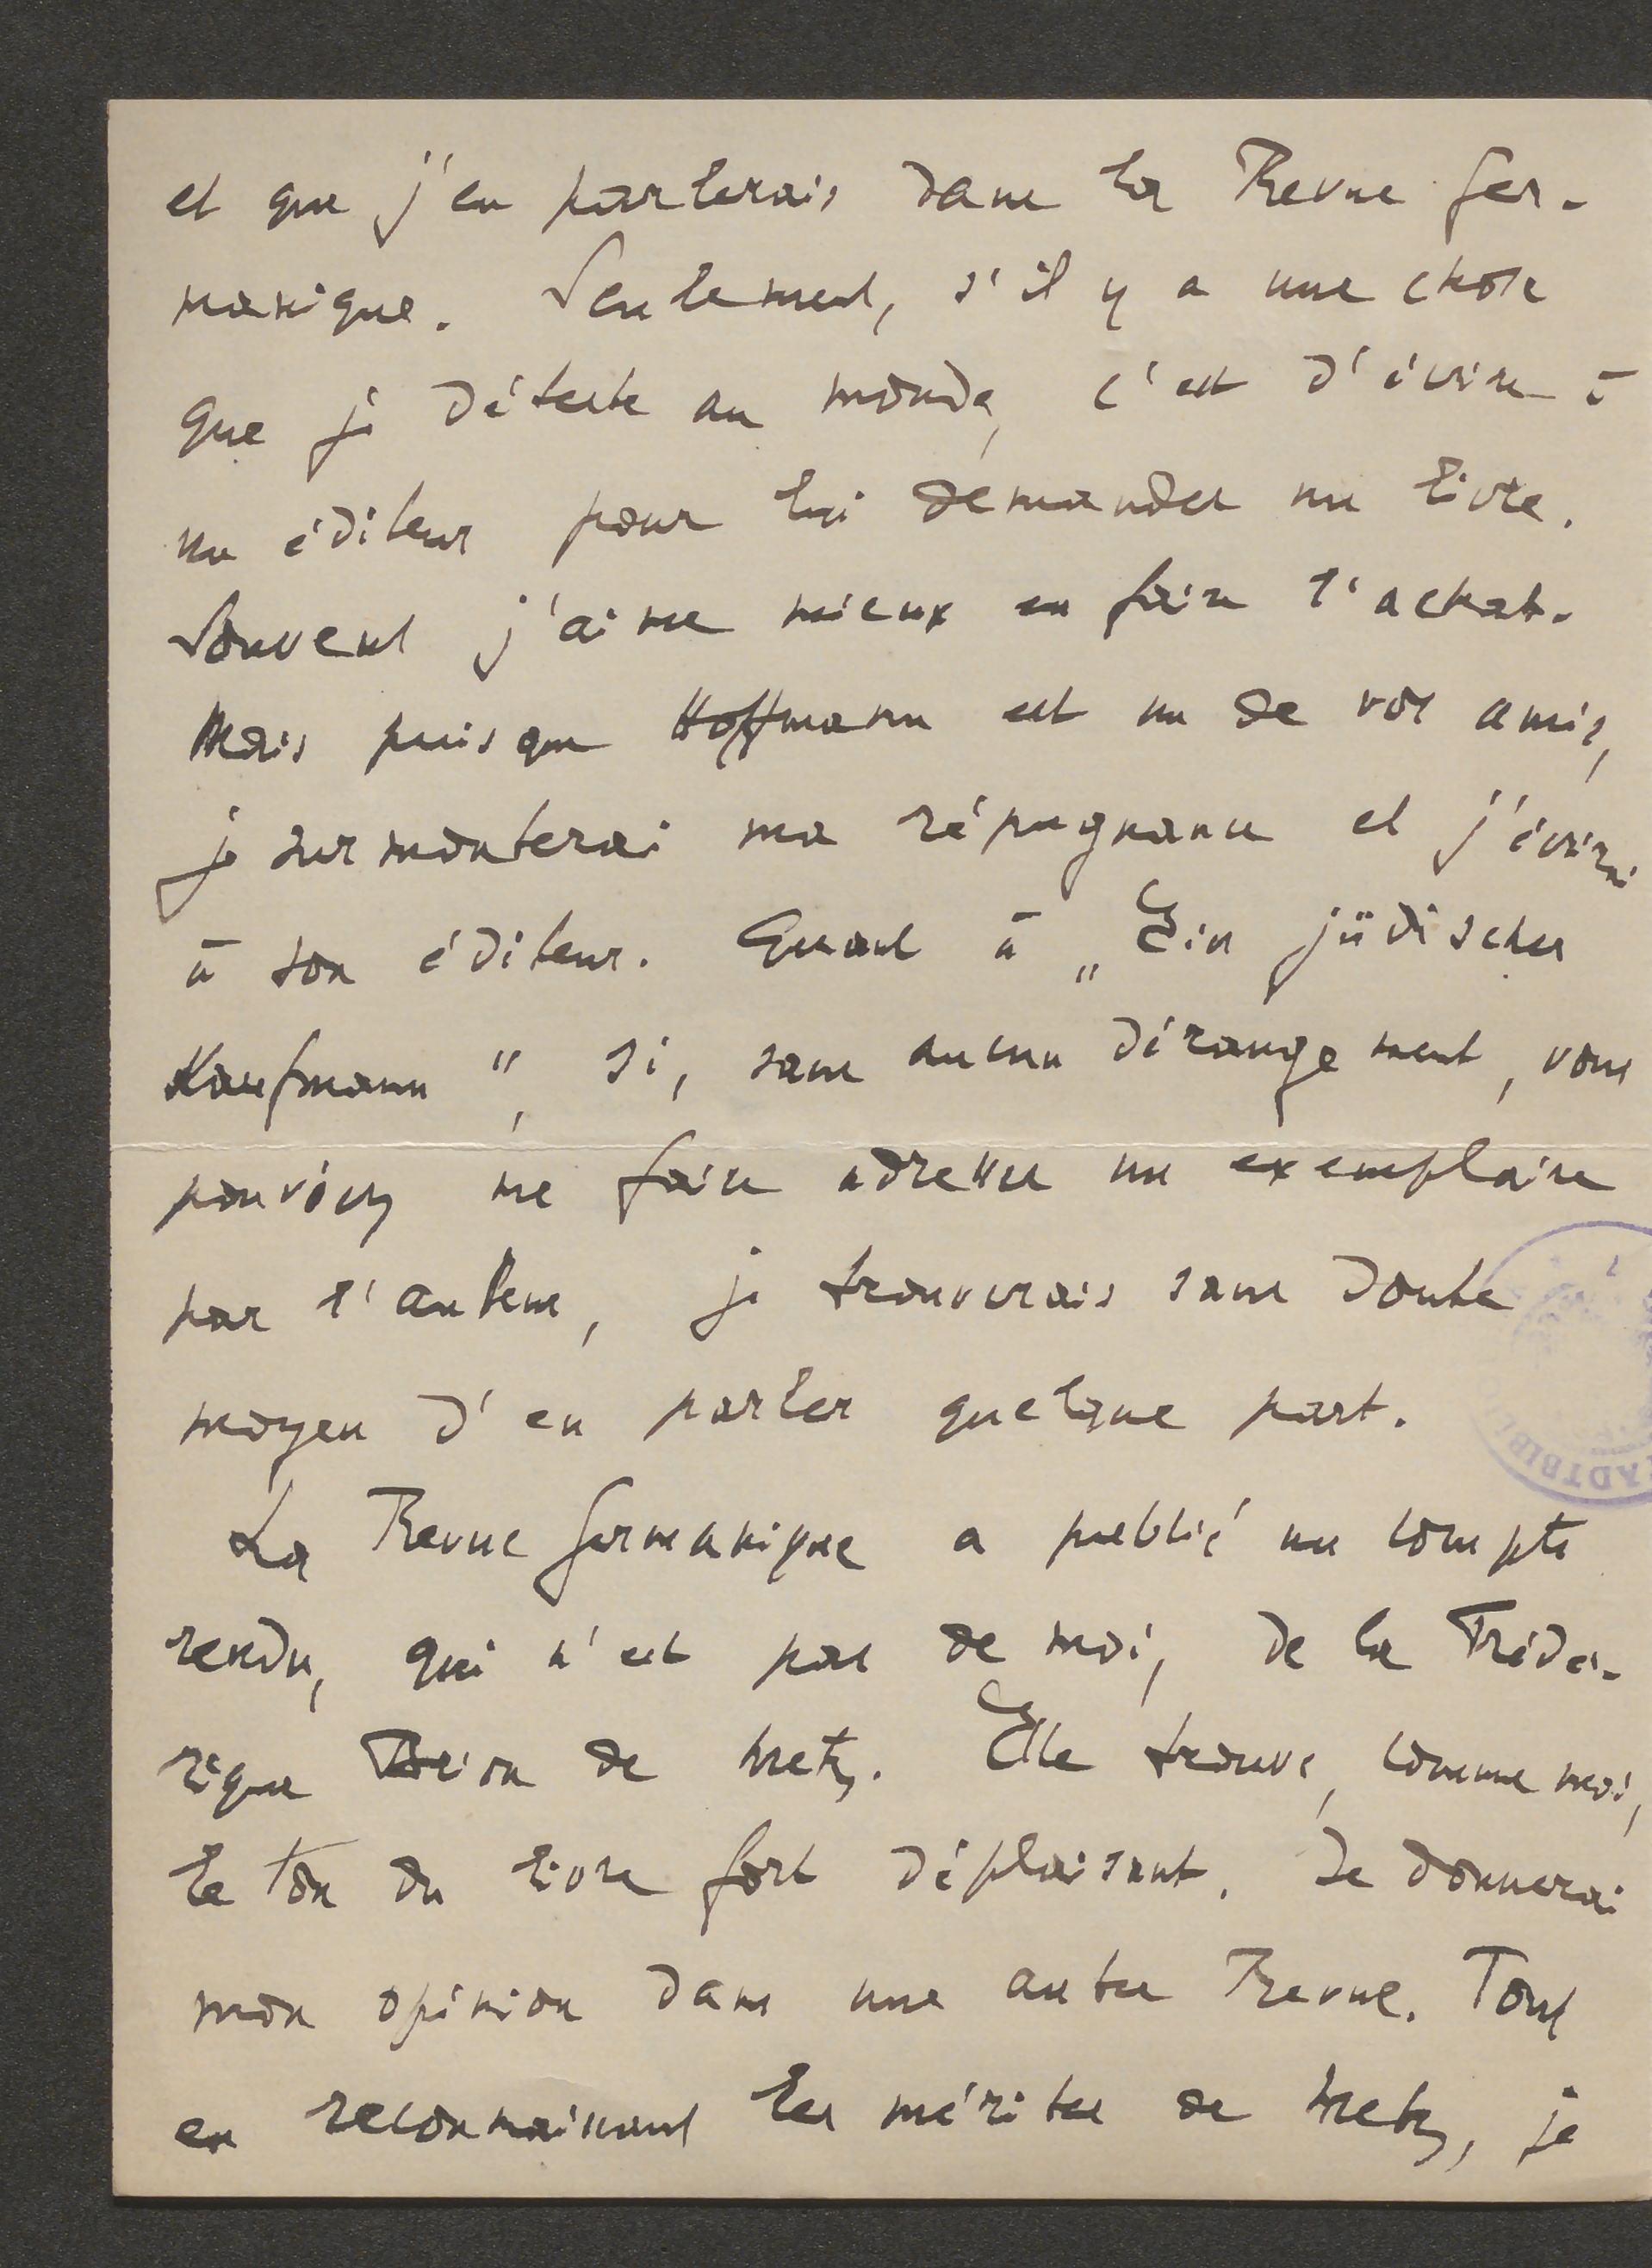 et que j'en parlerais dans la Revue Ger-
manique. Seulement, s'il y a une chose
que je déteste au monde, c'est d'écrire à
un éditeur pour lui demander un livre.
Souvent j'aime mieux en faire l'achat.
Mais puisque Hoffmann est un de vos amis,
je surmonterai ma répugnance et j'écrirai
à son éditeur. Quant à „Ein jüdischer
Kaufmann", si, sans aucun dérangement, vous
pouviez me faire adresser un exemplaire
par l'auteur, je trouverais sans doute
moyen d'en parler quelque part.
La Revue Germanique a publié un compte
rendu, qui n'est pas de moi, de la Fréde-
rique Brion de Metz. Elle trouve, comme moi,
le ton du livre fort déplaisant. Je donnerai
mon opinion dans une autre Revue. Tout
en reconnaissant les mérites de Metz, je